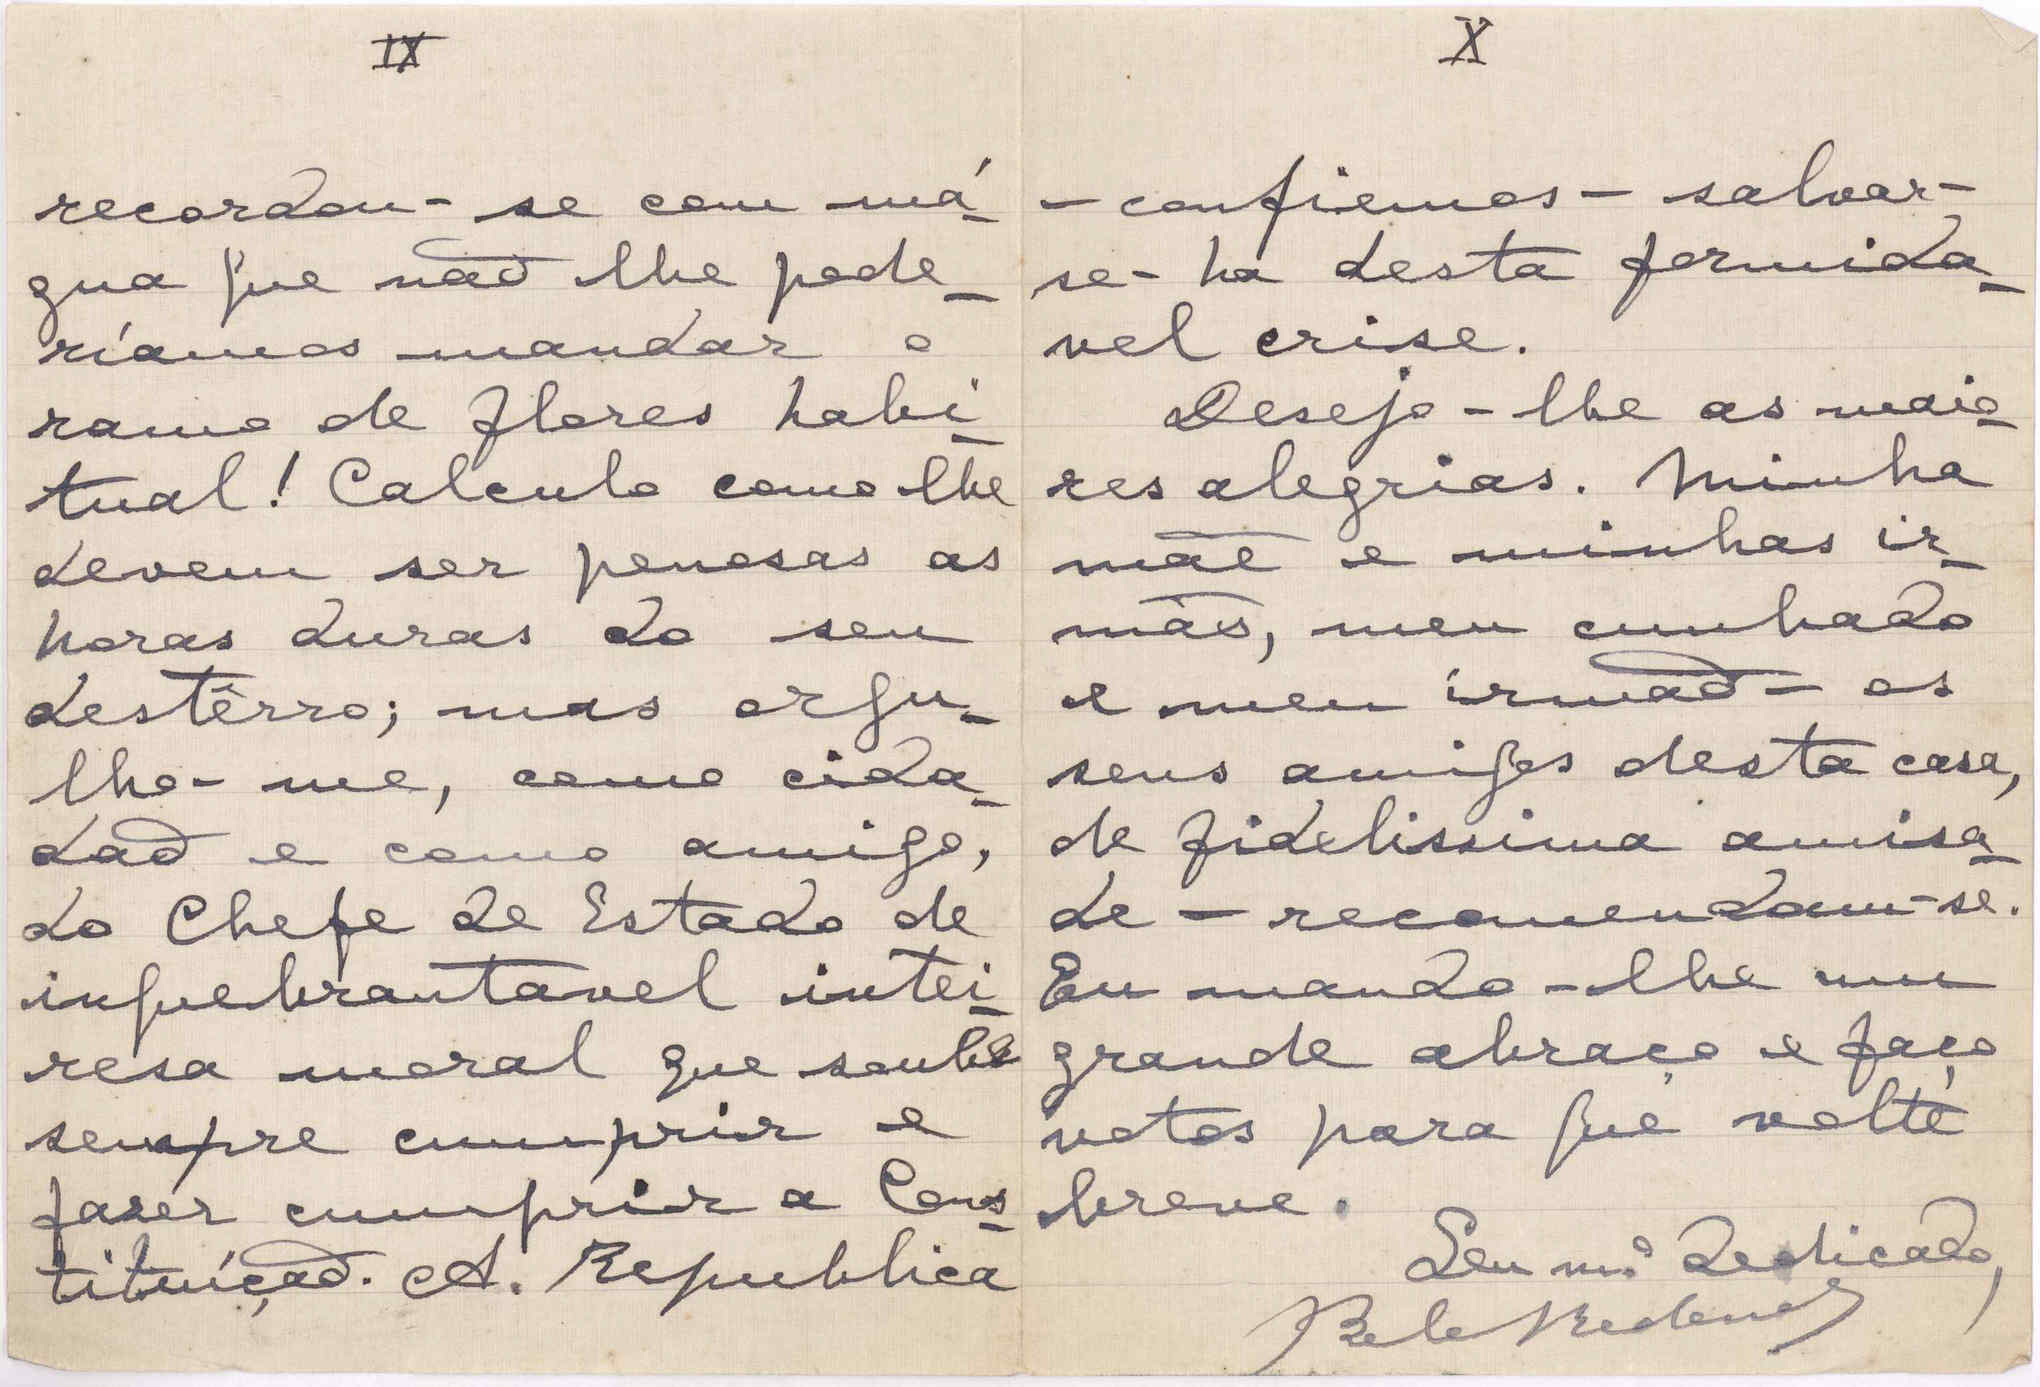 IX
recordou-se com má-
gua que não lhe pode-
ríamos mandar o
ramo de flores habi-
tual! Calculo como lhe
devem ser penosas as
horas duras do seu
destêrro; mas orgu-
lho-me, como cida-
dão e como amigo,
do Chefe de Estado de
inquebrantavel intei-
resa moral que soube
sempre cumprir e
fazer cumprir a Cons-
tituíção. A Republica
X
- confiemos - salvar-
se-ha desta formida-
vel crise.
Desejo-lhe as maio-
res alegrias. Minha
mãe e minhas ir-
mãs, meu cunhado
e meu irmão - os
seus amigos desta casa,
de fidelissima amisa-
de - recomendam-se.
Eu mando-lhe um
grande abraço e faço
votos para que volte
breve.
Seu mº dedicado,